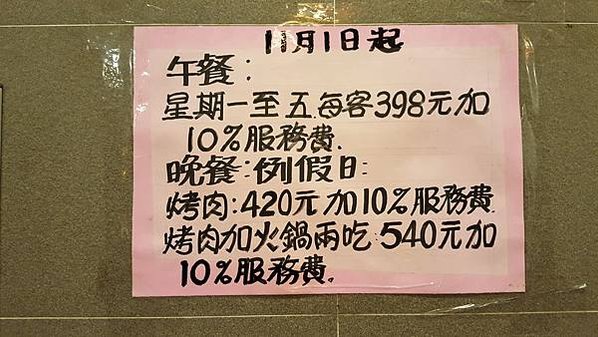 11月1日起
午餐:
星期一至五每客398元加
10%服務費.
晚餐:例假日:
烤肉:420元加10%服務費.
烤肉加火鍋兩吃:540元加
10%服務費.